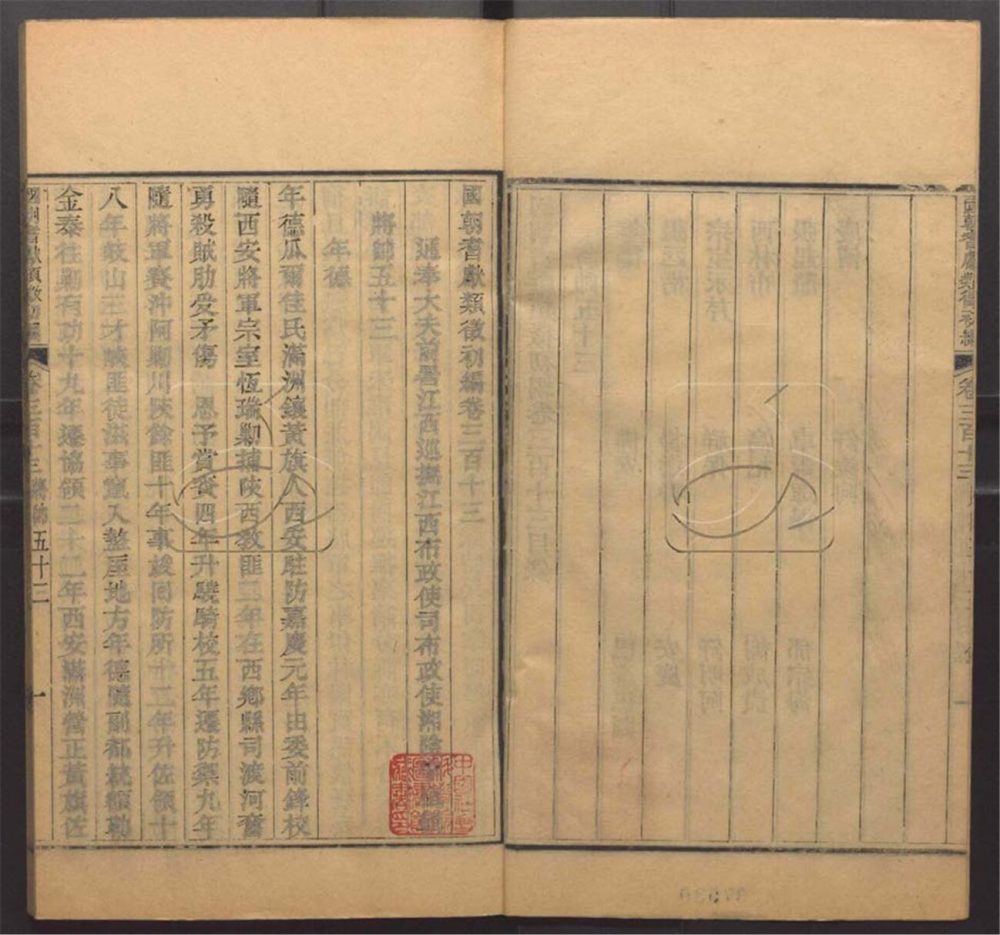 國朝耆獻類徵初編
卷三百十三
國朝耆獻類徵初編卷三百十三
通奉大夫前署江西巡撫江西布政使司布政使湘陰李桓輯
將帥五十三
年德
年德瓜爾佳氏滿洲鑲黃旗人西安駐防嘉慶元年由委前鋒校
隨西安將軍宗室恆瑞勦捕陝西教匪三年在西鄉縣司渡河奮
勇殺賊肋受矛傷 恩予賞賚四年升驍騎校五年遷防禦九年
隨將軍賽沖阿勦川陝餘匪十年事竣回防所十二年升佐領十
八年岐山三才峽匪徒滋事竄入盩厔地方年德隨副都統額勒
金泰往勦有功十九年遷協領二十二年西安滿洲營正黃旗佐
國朝耆獻類徵初編 卷三百十三 將帥五十三 一